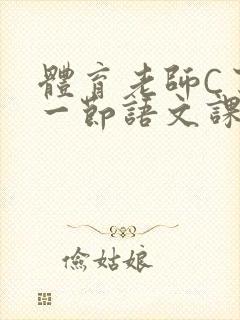 體育老師C
一節語文課
儉姑娘